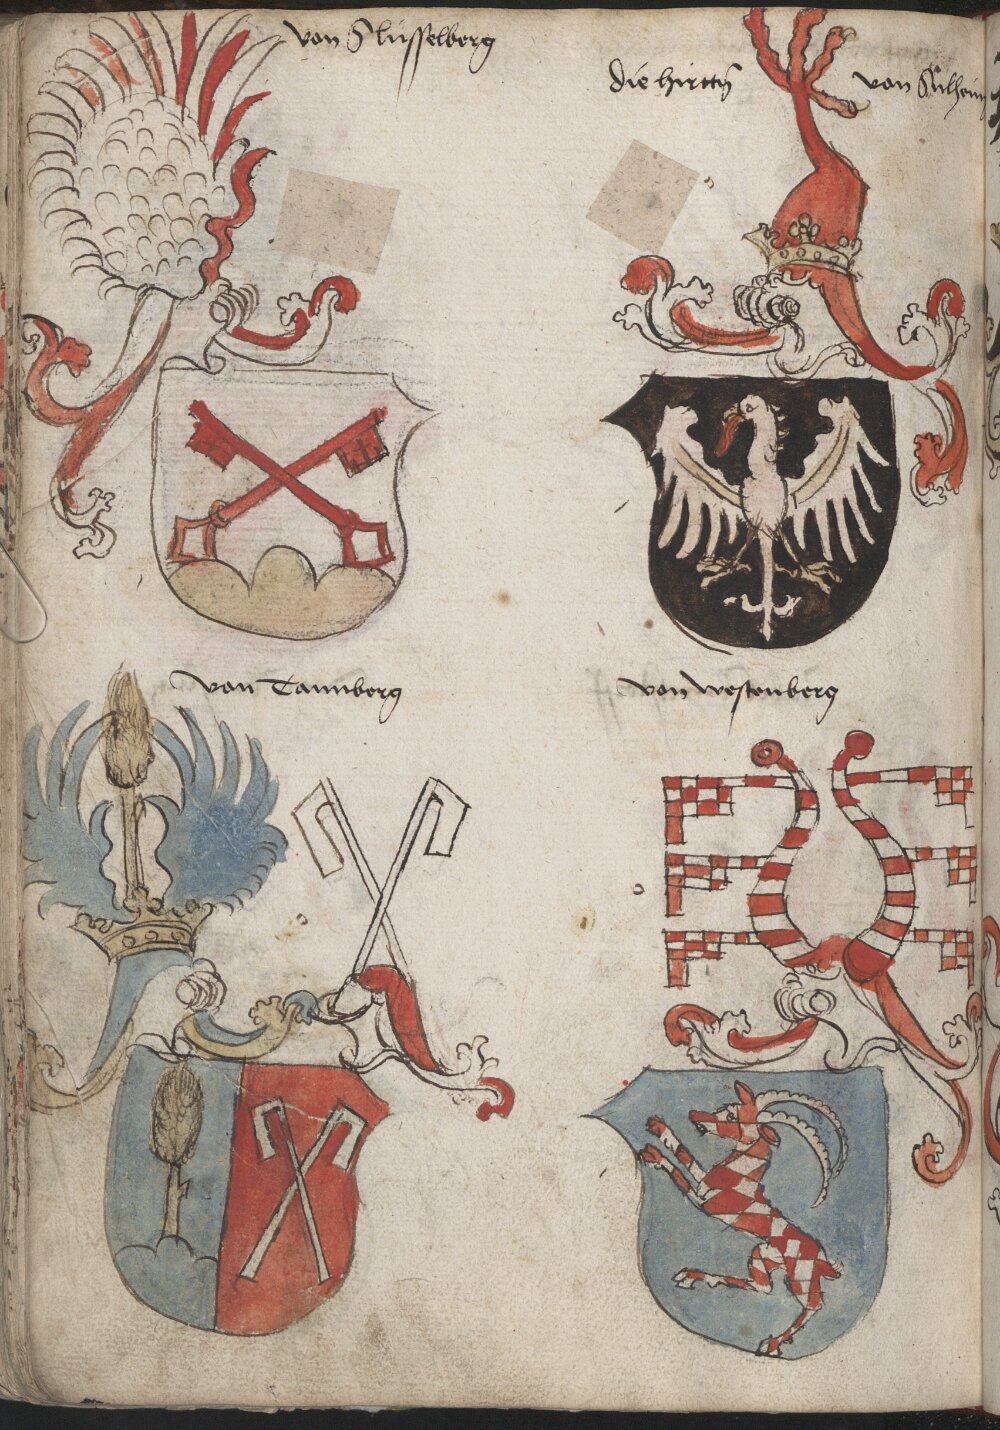 von Slüsselberg
die hirttn̄ von Sulheim
von Tannberg
von westenberg